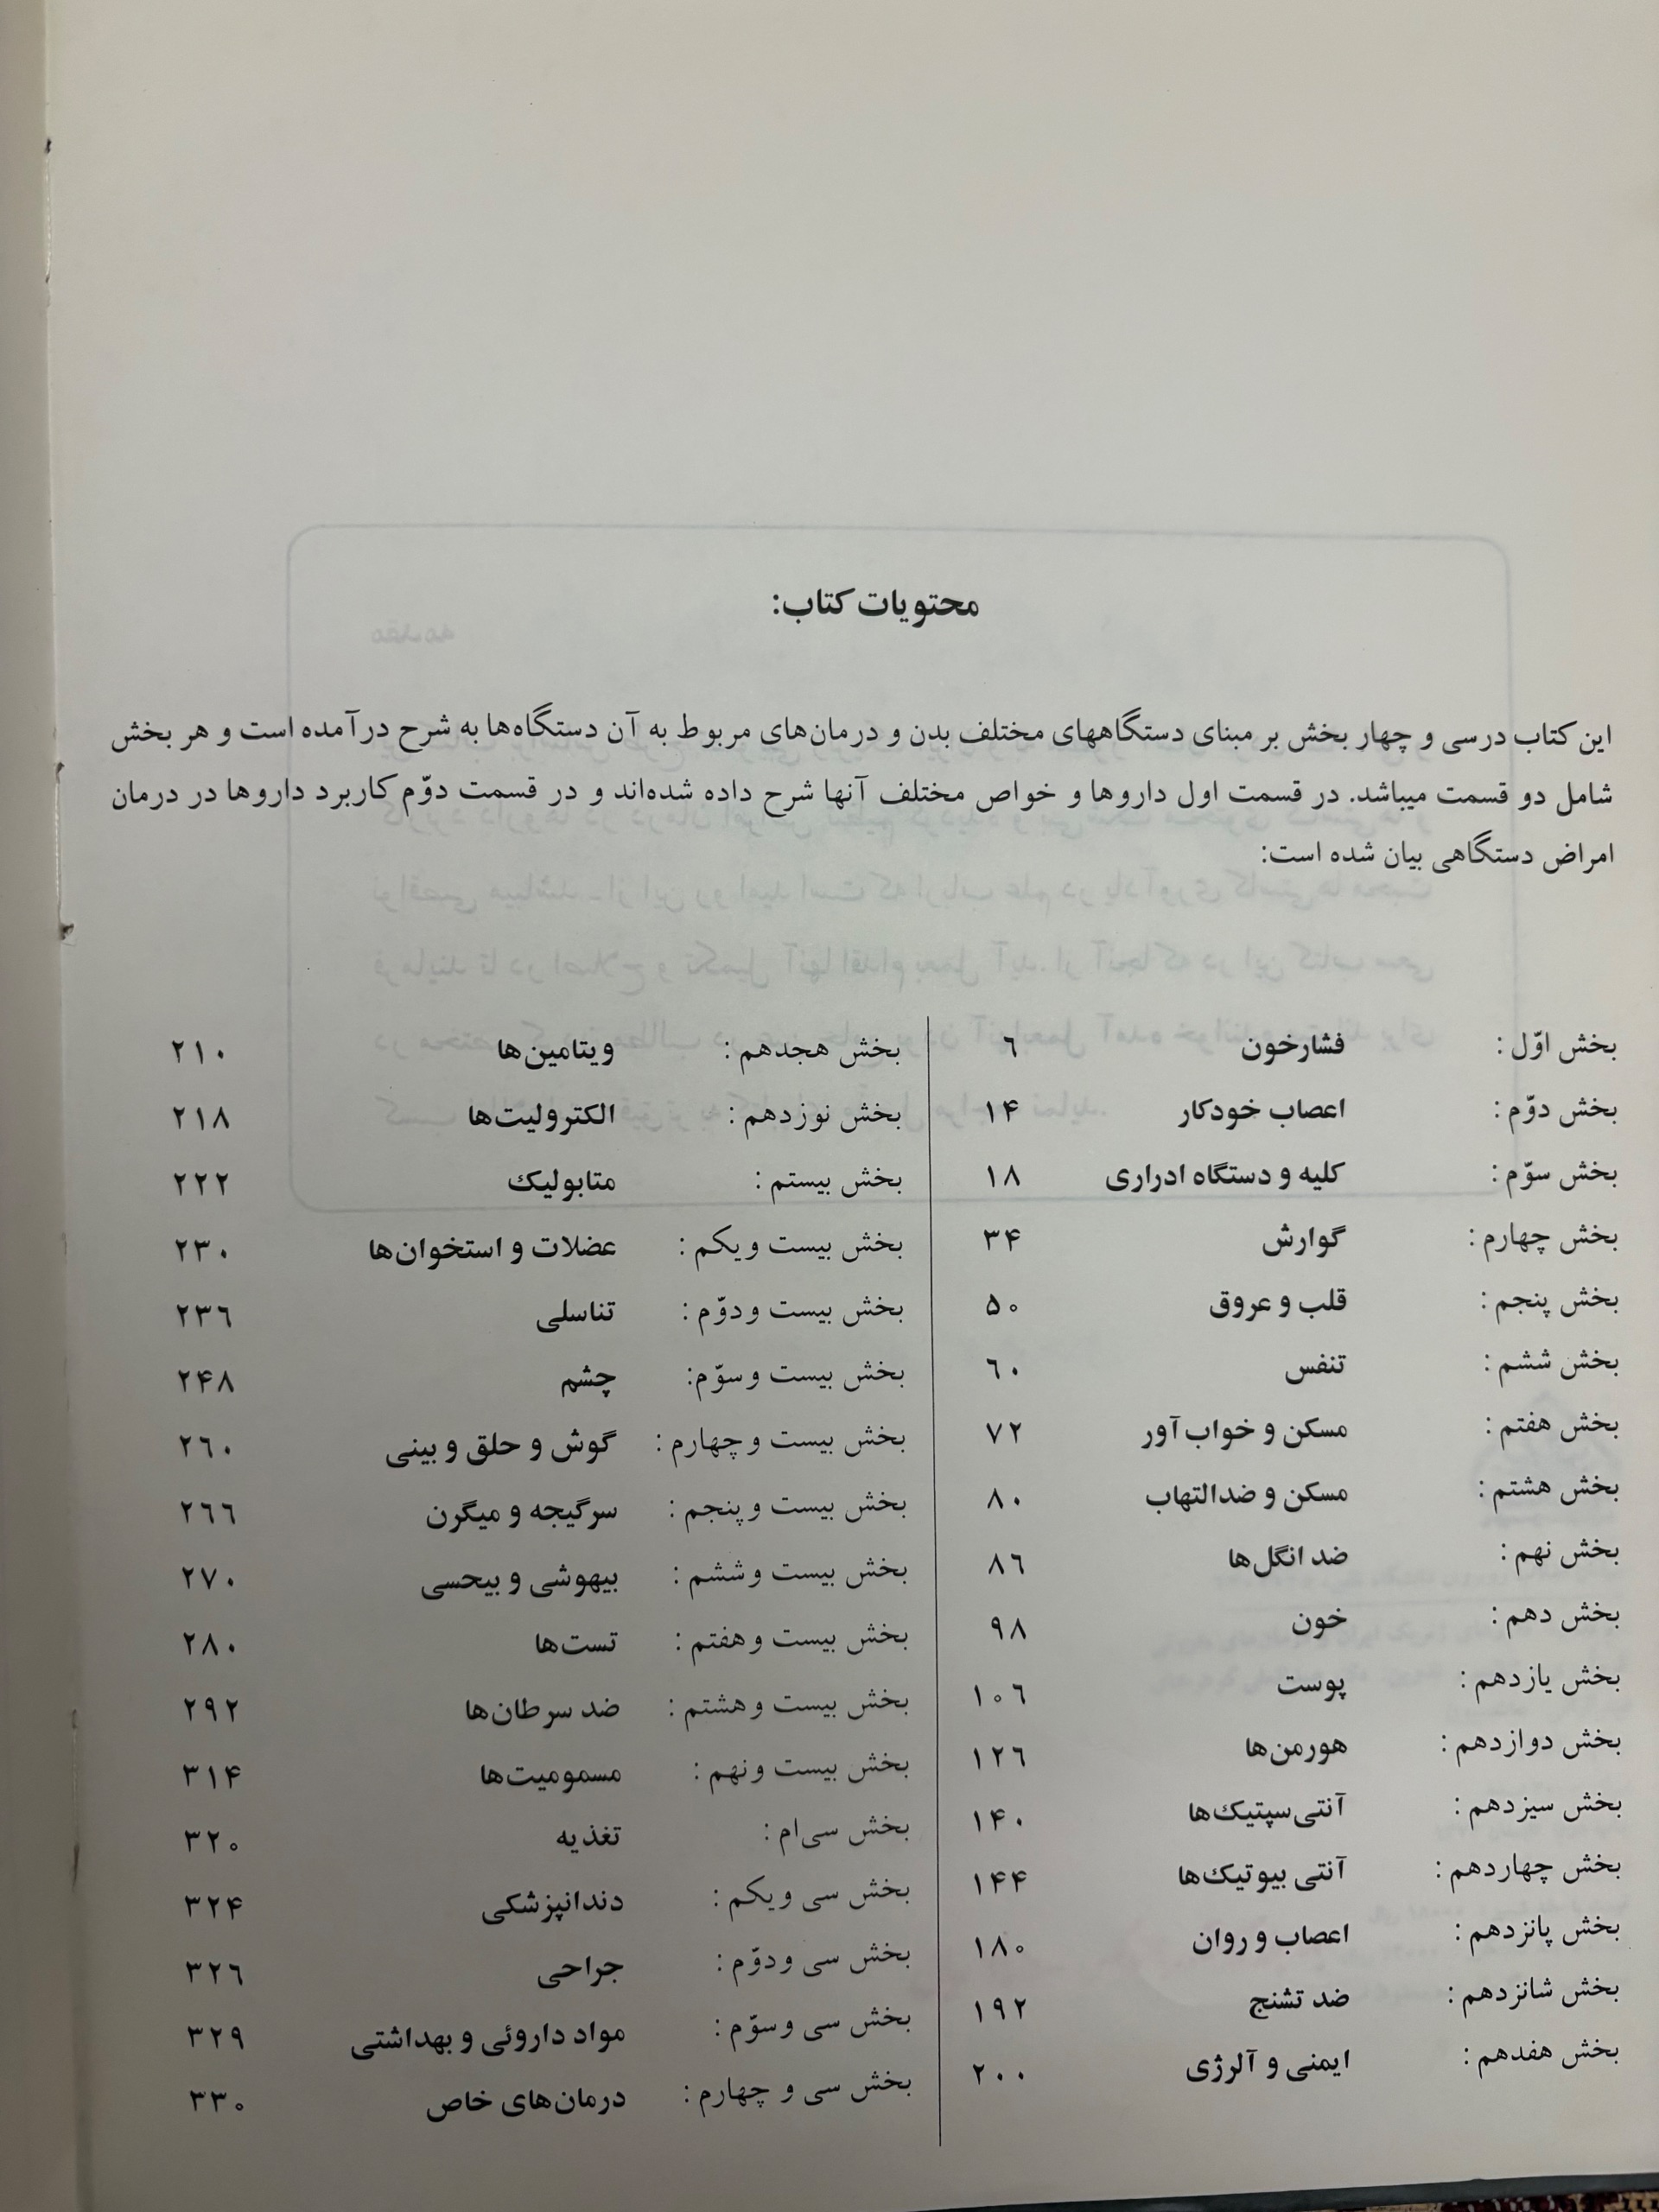 محتویات کتاب:
این کتاب درسی و چهار بخش بر مبنای دستگاههای مختلف بدن و درمان‌های مربوط به آن دستگاه‌ها به شرح درآمده است و هر بخش
شامل دو قسمت میباشد. در قسمت اول داروها و خواص مختلف آنها شرح داده شده‌اند و در قسمت دوّم کاربرد داروها در درمان
امراض دستگاهی بیان شده است:
بخش اوّل : فشارخون ٦
بخش دوّم : اعصاب خودکار ۱۴
بخش سوّم : کلیه و دستگاه ادراری ۱۸
بخش چهارم : گوارش ۳۴
بخش پنجم : قلب و عروق ۵۰
بخش ششم : تنفس ٦۰
بخش هفتم : مسکن و خواب‌آور ۷۲
بخش هشتم : مسکن و ضدالتهاب ۸۰
بخش نهم : ضد انگل‌ها ۸٦
بخش دهم : خون ۹۸
بخش یازدهم : پوست ۱۰٦
بخش دوازدهم : هورمن‌ها ۱۲٦
بخش سیزدهم : آنتی‌سپتیک‌ها ۱۴۰
بخش چهاردهم : آنتی بیوتیک‌ها ۱۴۴
بخش پانزدهم : اعصاب و روان ۱۸۰
بخش شانزدهم : ضد تشنج ۱۹۲
بخش هفدهم : ایمنی و آلرژی ۲۰۰
بخش هجدهم : ویتامین‌ها ۲۱۰
بخش نوزدهم : الکترولیت‌ها ۲۱۸
بخش بیستم : متابولیک ۲۲۲
بخش بیست و یکم : عضلات و استخوان‌ها ۲۳۰
بخش بیست و دوّم : تناسلی ۲۳٦
بخش بیست و سوّم: چشم ۲۴۸
بخش بیست و چهارم : گوش و حلق و بینی ۲٦۰
بخش بیست و پنجم : سرگیجه و میگرن ۲٦٦
بخش بیست و ششم : بیهوشی و بیحسی ۲۷۰
بخش بیست و هفتم : تست‌ها ۲۸۰
بخش بیست و هشتم : ضد سرطان‌ها ۲۹۲
بخش بیست و نهم : مسمومیت‌ها ۳۱۴
بخش سی‌ام : تغذیه ۳۲۰
بخش سی و یکم : دندانپزشکی ۳۲۴
بخش سی و دوّم : جراحی ۳۲٦
بخش سی و سوّم : مواد داروئی و بهداشتی ۳۲۹
بخش سی و چهارم : درمان‌های خاص ۳۳۰